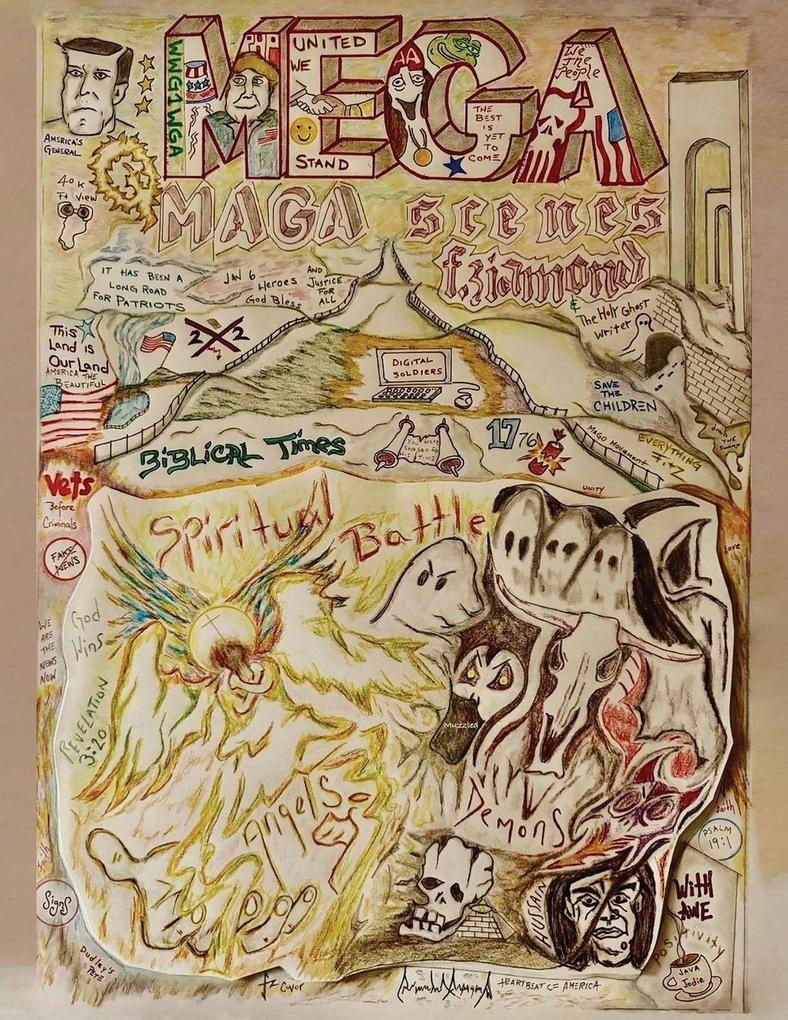 MEGA
WWG1WGA
PHP
UNITED
WE
STAND
AA
THE
BEST
IS
YET
TO
COME
We
The
People
AMERICA'S
GENERAL
40K
Ft View
MAGA scenes
f.ziamond
& The Holy Ghost
Writer
IT HAS BEEN A
LONG ROAD
FOR PATRIOTS
JAN 6
Heroes
God Bless
AND
JUSTICE
FOR
ALL
This
Land is
Our Land
AMERICA THE
BEAUTIFUL
2X2
DIGITAL
SOLDIERS
SAVE
THE
CHILDREN
BiBLiCAL Times
You were
chosen for
this TIME
1776
MAGA Movement
EVERYTHING
UNITY
drain
THE
Swamp
Vets
Before
Criminals
FAKE
NEWS
WE
ARE
THE
NEWS
NOW
love
Spiritual Battle
God
Wins
REVELATION
3:20
Muzzled
Angels
Demons
HUSSAIN
faith
PSALM
19:1
WITH
AWE
POSITIVITY
JAVA
Jodie
Faith
Signs
Dudley's
PETE
fz Cover
HEARTBEAT OF AMERICA